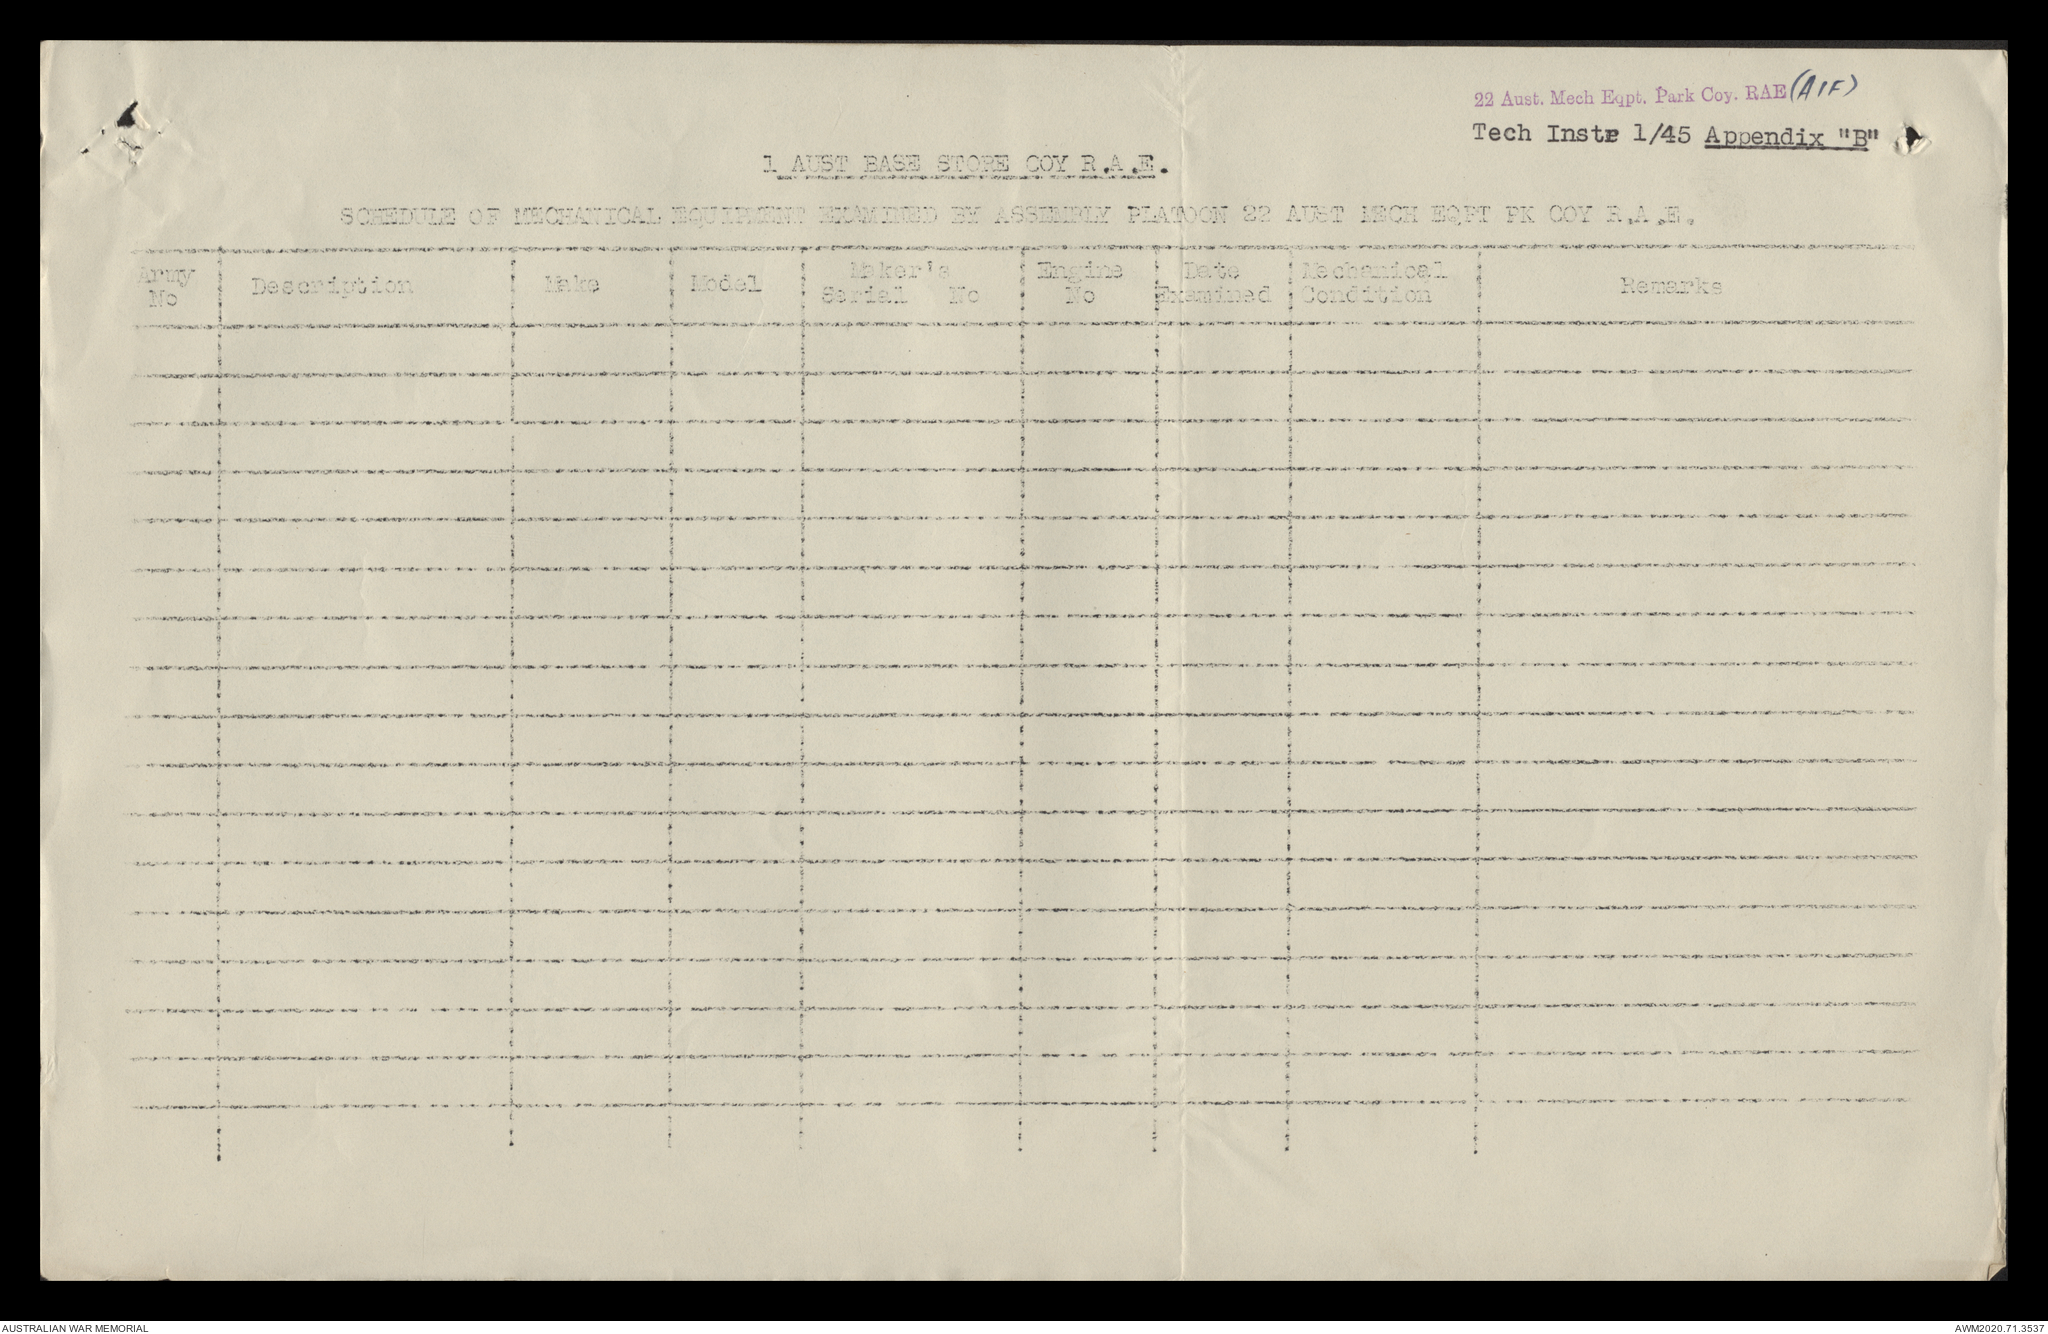 22 Aust. Mech Eqpt. Park Coy. RAE (AIF)
Tech Instr 1/45 Appendix "B"
1 AUST BASE STORE COY R.A.E.
SCHEDULE OF MECHANICAL EQUIPMENT EXAMINED BY ASSEMBLY PLATOON 22 AUST MECH EQPT PK COY R.A.E.
Army No
Description
Make
Model
Maker's Serial No
Engine No
Date Examined
Mechanical Condition
Remarks
AUSTRALIAN WAR MEMORIAL
AWM2020.71.3537